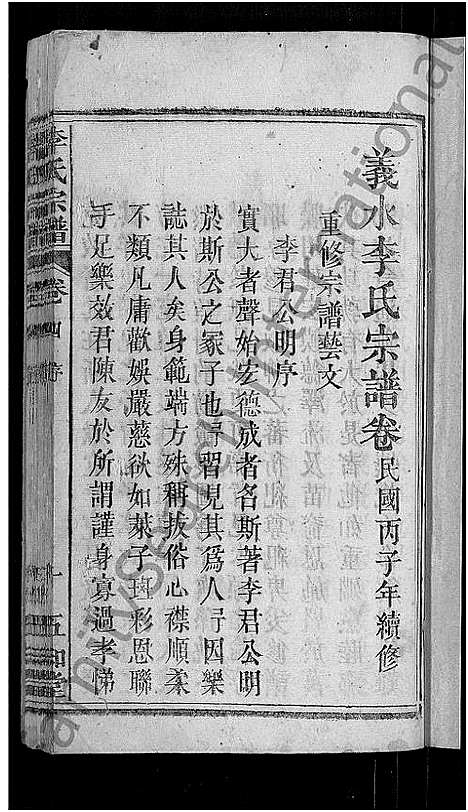 義水李氏宗譜卷 民國丙子年續修
重修宗譜藝文
李君公明序
實大者聲始宏德成者名斯著李君公明
於斯公之冢子也予習見其為人予因樂
誌其人矣身範端方殊稱拔俗心襟順柔
不類凡庸歡娛嚴慈欲如萊子斑彩恩聯
手足樂效君陳友於所謂謹身寡過孝悌
李氏宗譜 卷四